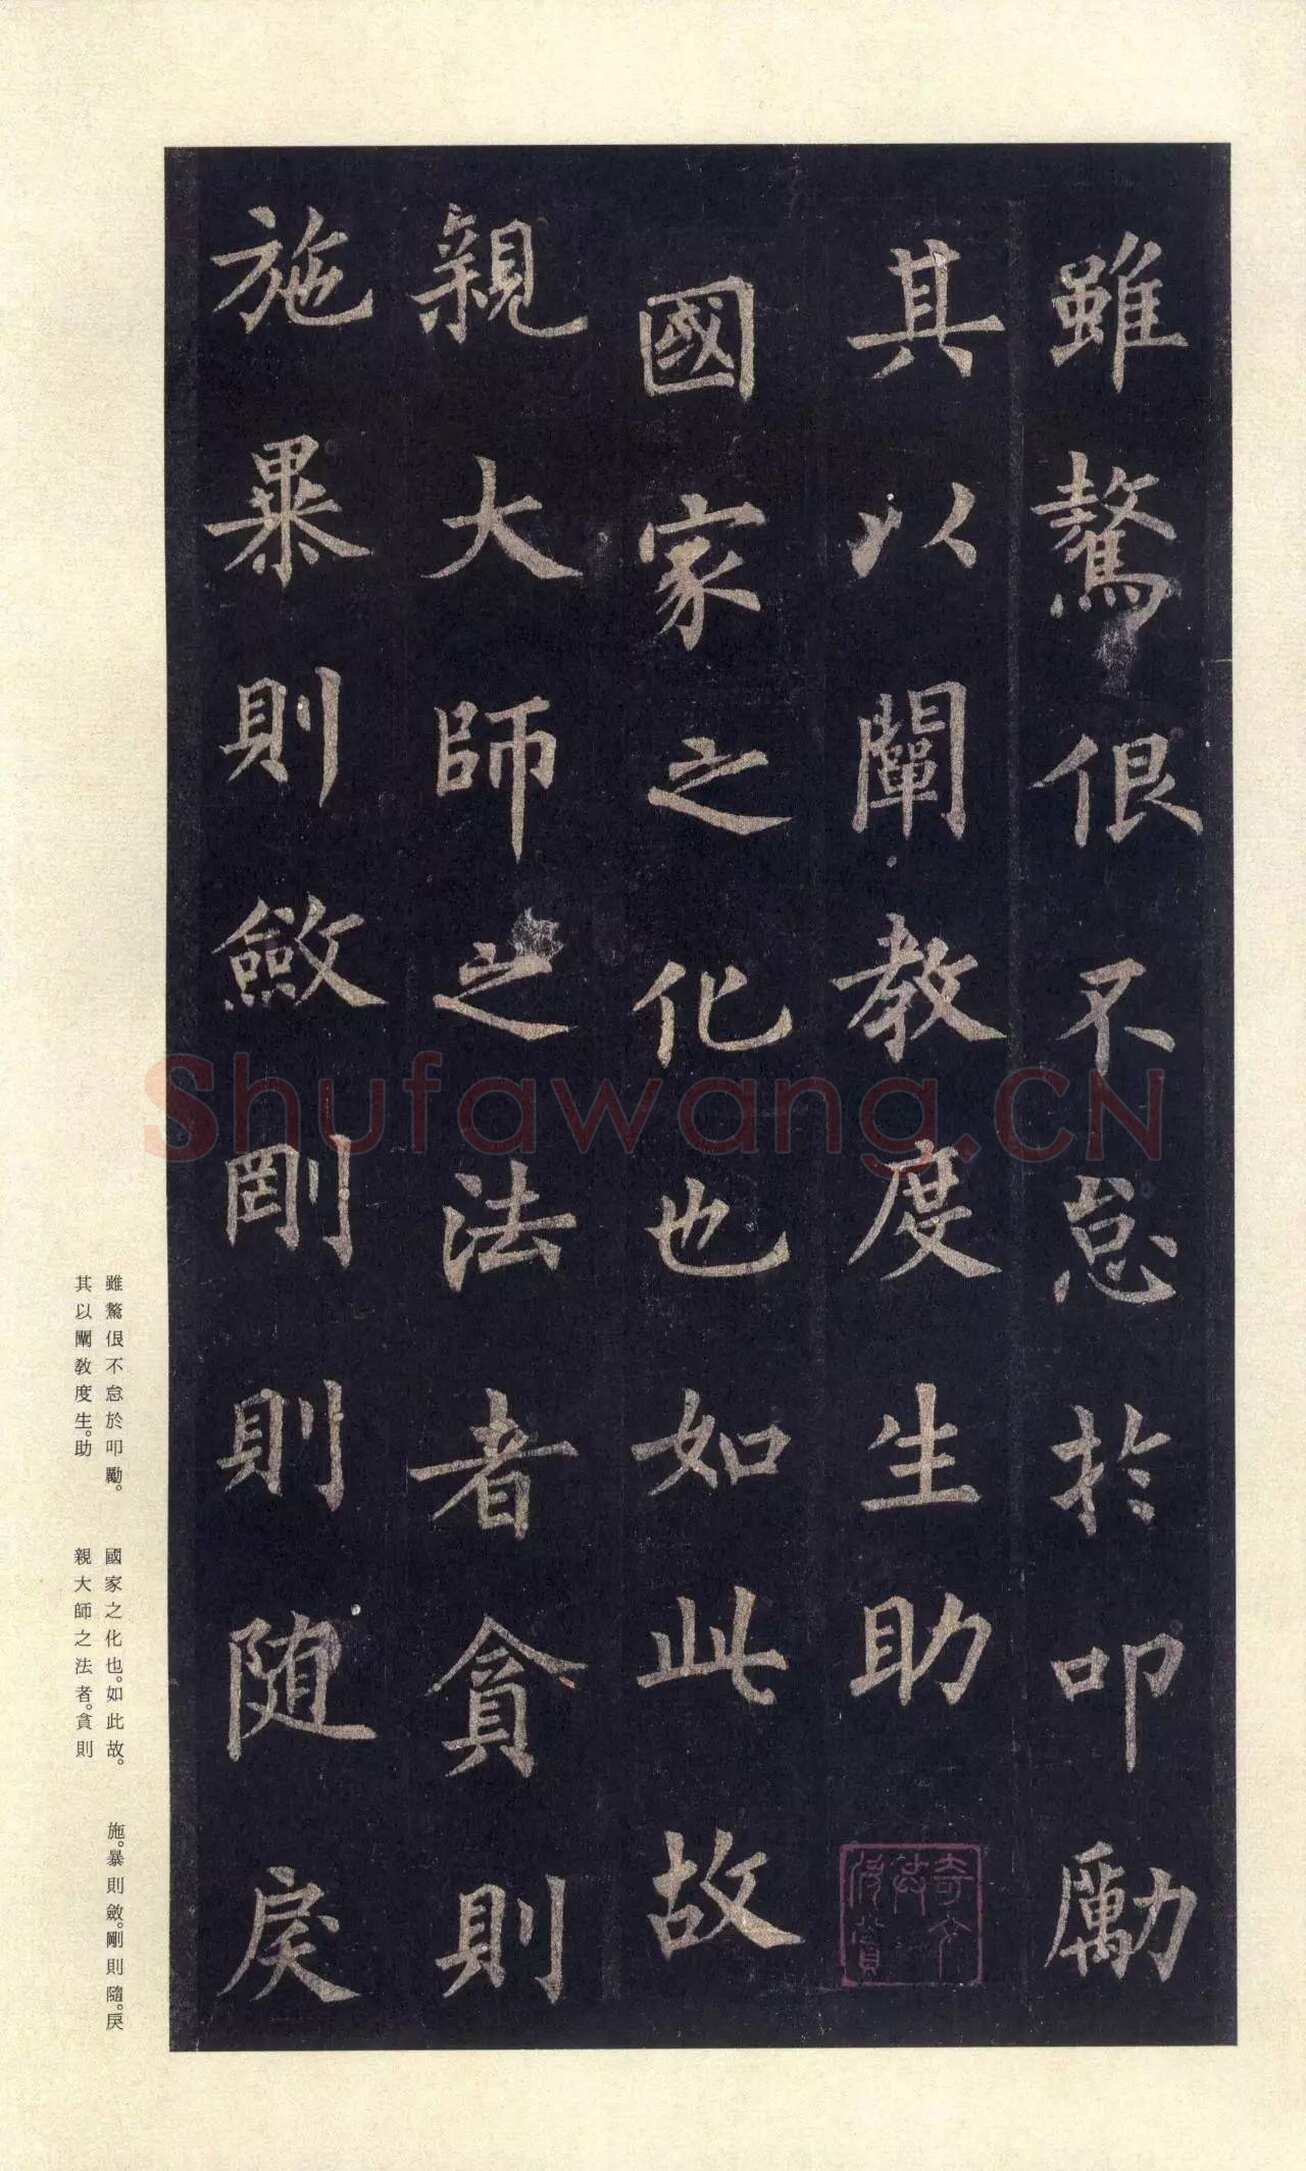 雖驁佷不怠於叩勵
其以闡教度生助
國家之化也如此故
親大師之法者貪則
施暴則斂剛則隨戾
Shufawang.CN
雖驁佷不怠於叩勵。
其以闡教度生。助
國家之化也。如此故。
親大師之法者。貪則
施。暴則斂。剛則隨。戾